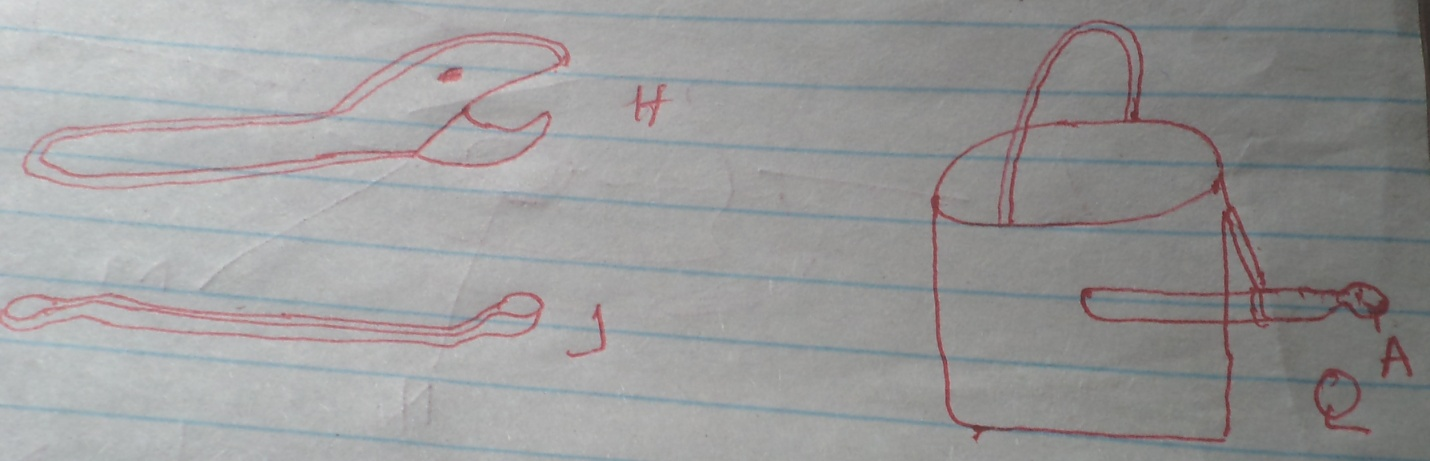 H
J
A
Q